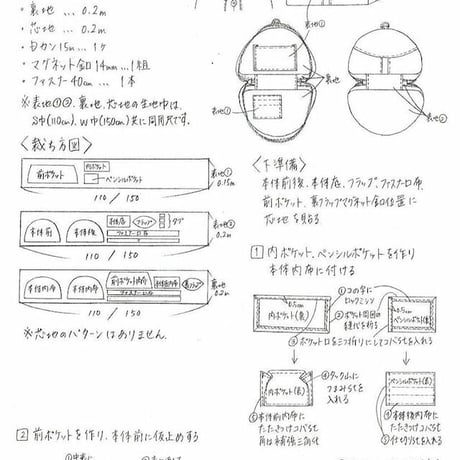 ・裏地 … 0.2m
・芯地 … 0.2m
・Dカン15m … 1ヶ
・マグネット金口14mm … 1組
・ファスナー40cm … 1本
※表地①②、裏地、芯地の生地巾は、
S巾(110cm)、W巾(150cm)共に同用尺です。
〈裁ち方図〉
前ポケット
内ポケット
ペンシルポケット
表地①
0.15m
110 / 150
本体前
本体後
本体底
フラップ
タブ
ファスナー口布
表地②
0.2m
110 / 150
本体内布
本体内布
前ポケット内布
ファスナー口布
裏地
0.2m
110 / 150
※芯地のパターンはありません。
表地①
表地①
裏地
裏地
表地②
〈下準備〉
本体前後、本体底、フラップ、ファスナー口布、
前ポケット、裏フラップマグネット金口位置に
芯地を貼る
1 内ポケット、ペンシルポケットを作り
本体内布に付ける
①コの字に
ロックミシン
0.5cm
内ポケット(裏)
②ポケット周囲の
縫代を折る
0.5cm
ペンシルポケット(裏)
③ポケット口を三つ折りにしてコバstを入れる
内ポケット(表)
④タック山に
つまみstを
入れる
ペンシルポケット(表)
⑤本体前内布に
たたきつけコバst
角は補強三角st
④本体後内布に
たたきつけコバst
⑤仕切りstを入れる
2 前ポケットを作り、本体前に仮止めする